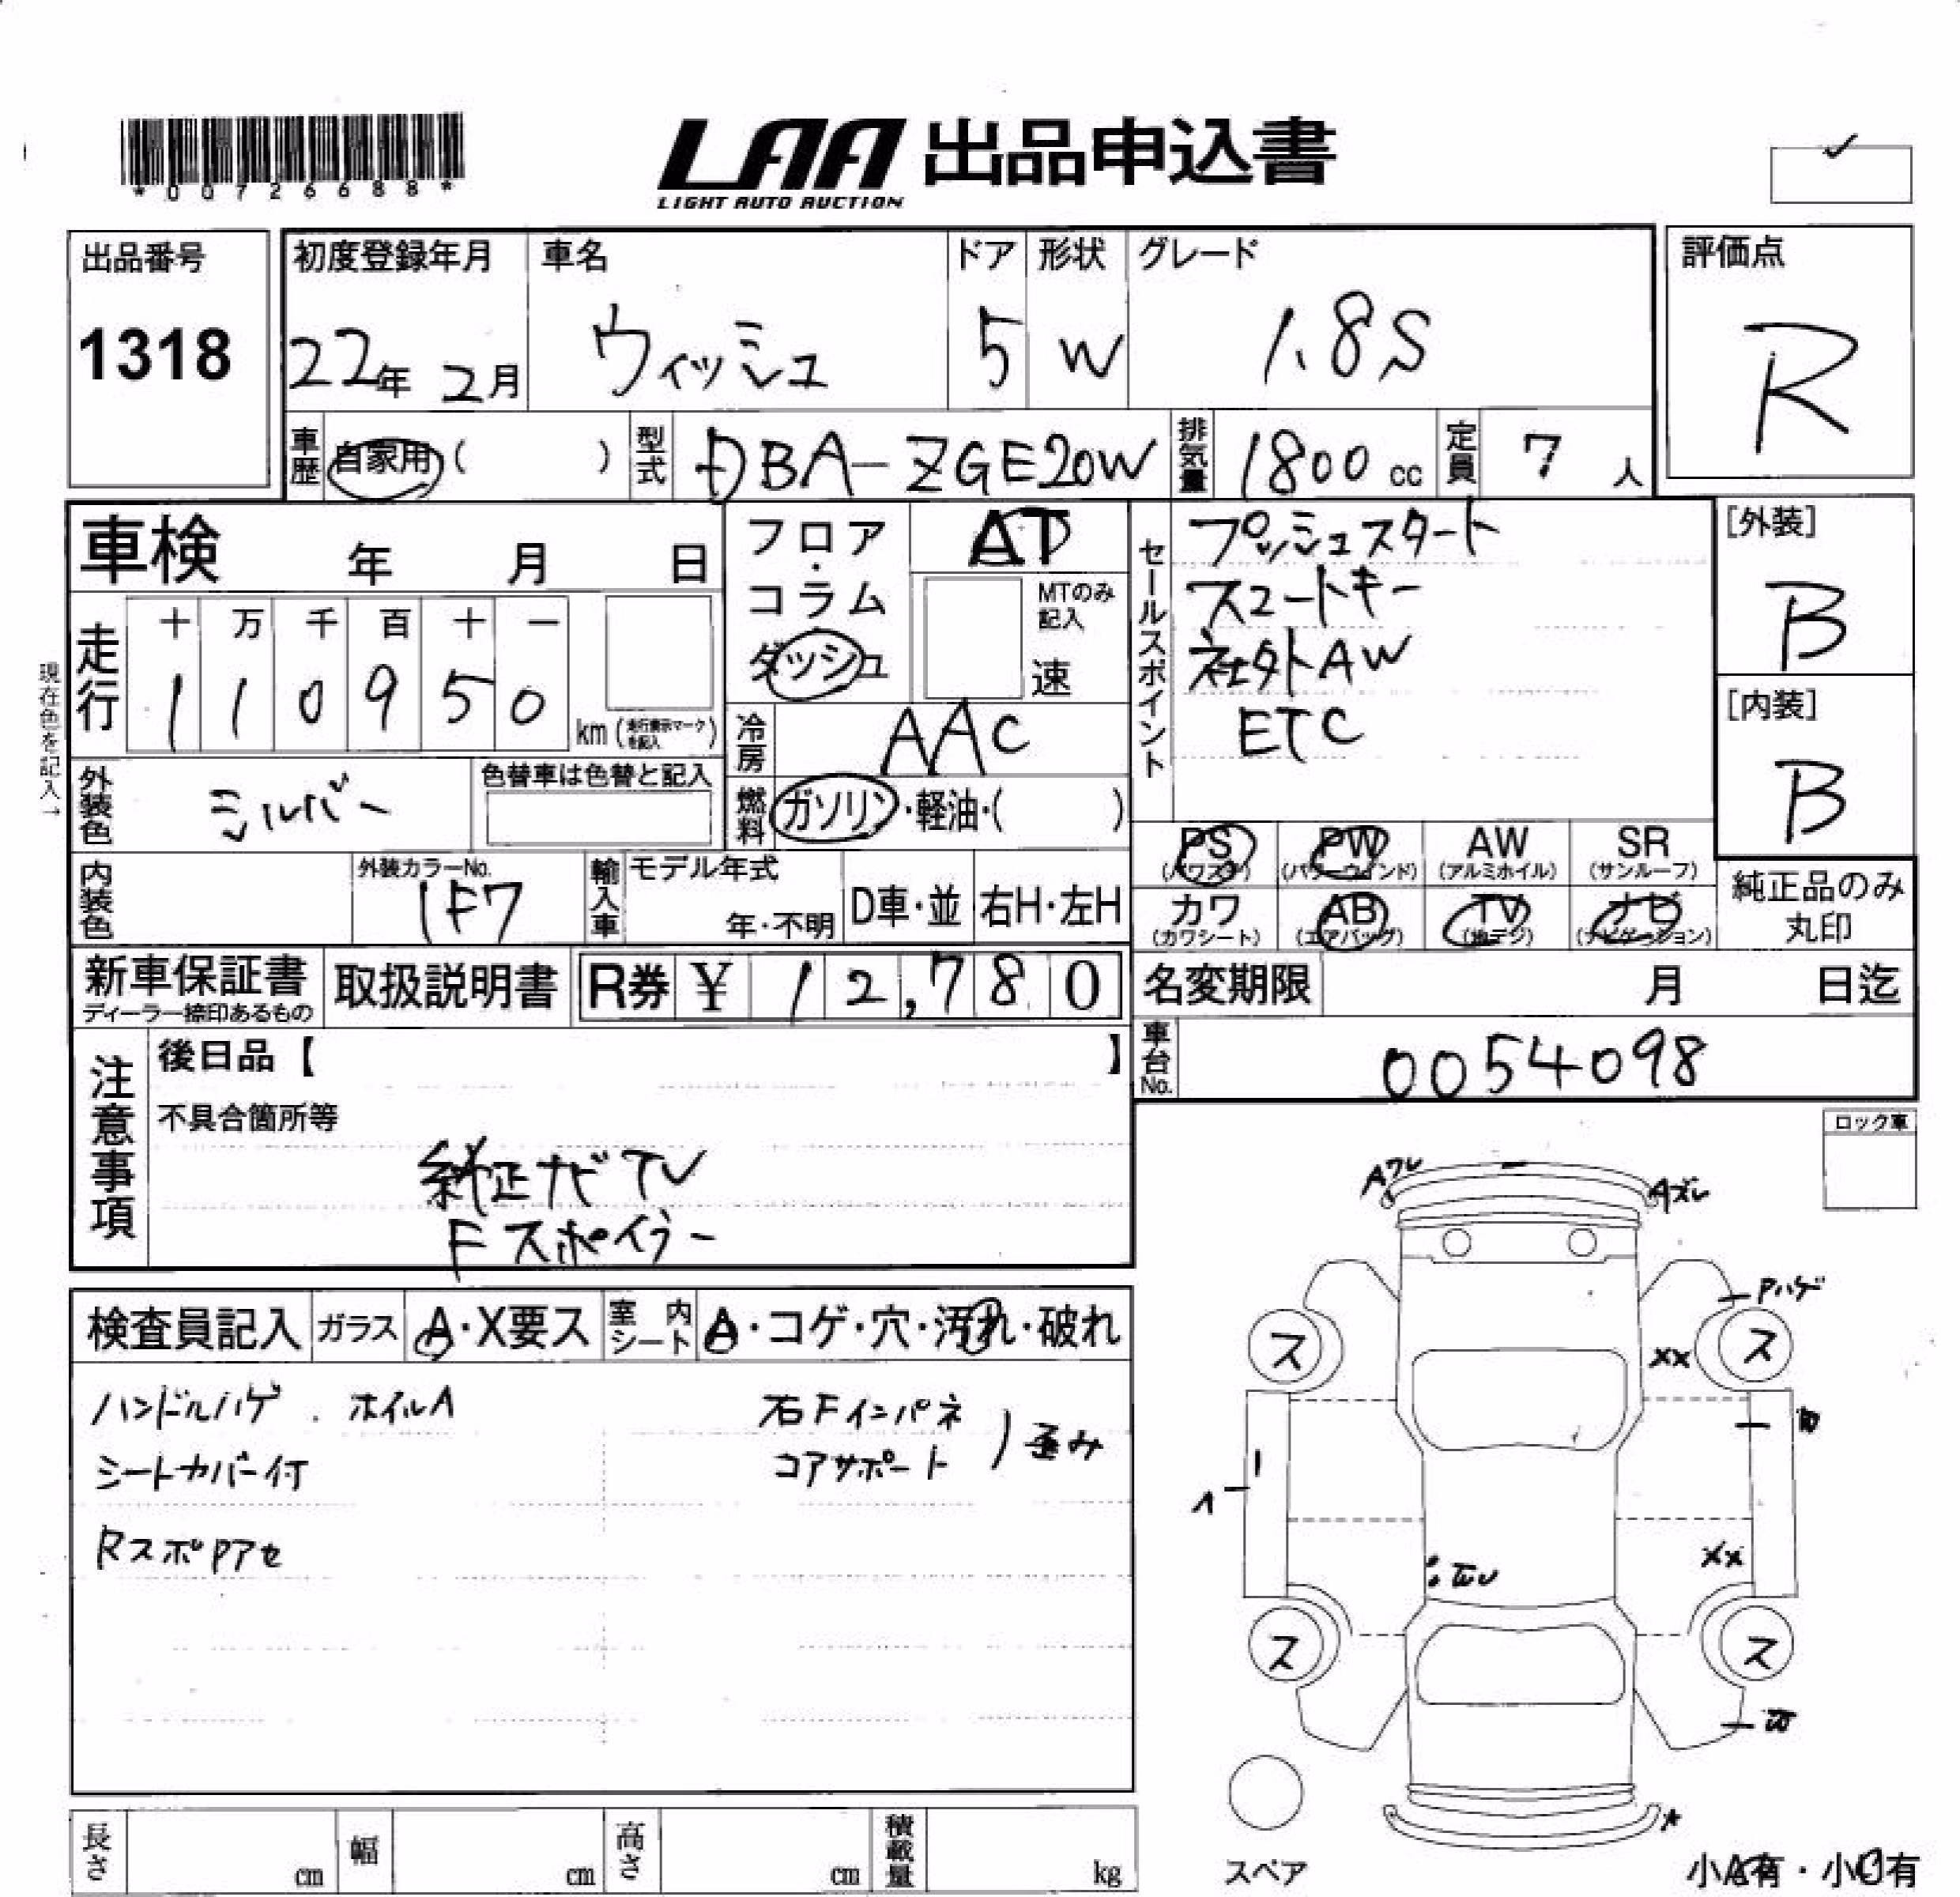 *00726688*
LAA 出品申込書
LIGHT AUTO AUCTION
出品番号
1318
初度登録年月
22年 2月
車名
ウィッシュ
ドア
5
形状
W
グレード
1.8S
評価点
R
車歴 自家用 ( )
型式 DBA-ZGE20W
排気量 1800 cc
定員 7 人
車検 年 月 日
フロア・コラム
ダッシュ
AT
MTのみ記入
速
セールスポイント
プッシュスタート
スマートキー
社外AW
ETC
[外装]
B
[内装]
B
現在色を記入→
走行
十 万 千 百 十 一
1 1 0 9 5 0
km (走行表示マークを記入)
冷房 AAC
外装色 シルバー
色替車は色替と記入
燃料 ガソリン・軽油・( )
PS AW SR
PW
(パワステ) (パワーウインド) (アルミホイル) (サンルーフ)
カワ AB TV ナビ
(カワシート) (エアバッグ) (地デジ) (ナビゲーション)
純正品のみ
丸印
内装色
外装カラーNo.
1F7
輸入車
モデル年式
年・不明
D車・並
右H・左H
新車保証書
ディーラー捺印あるもの
取扱説明書
R券 ¥ 12,780
名変期限 月 日迄
車台No. 0054098
注意事項
後日品【 】
不具合箇所等
純正ナビTV
Fスポイラー
ロック車
検査員記入
ガラス A・X要ス
室内シート A・コゲ・穴・汚れ・破れ
ハンドルハゲ . ホイルA
シートカバー付
RスポPアセ
右Fインパネ
コアサポート
歪み
Aズレ
Pハゲ
ス
ス
XX
XX
ス
ス
A
スペア
長さ cm
幅 cm
高さ cm
積載量 kg
小A有・小U有